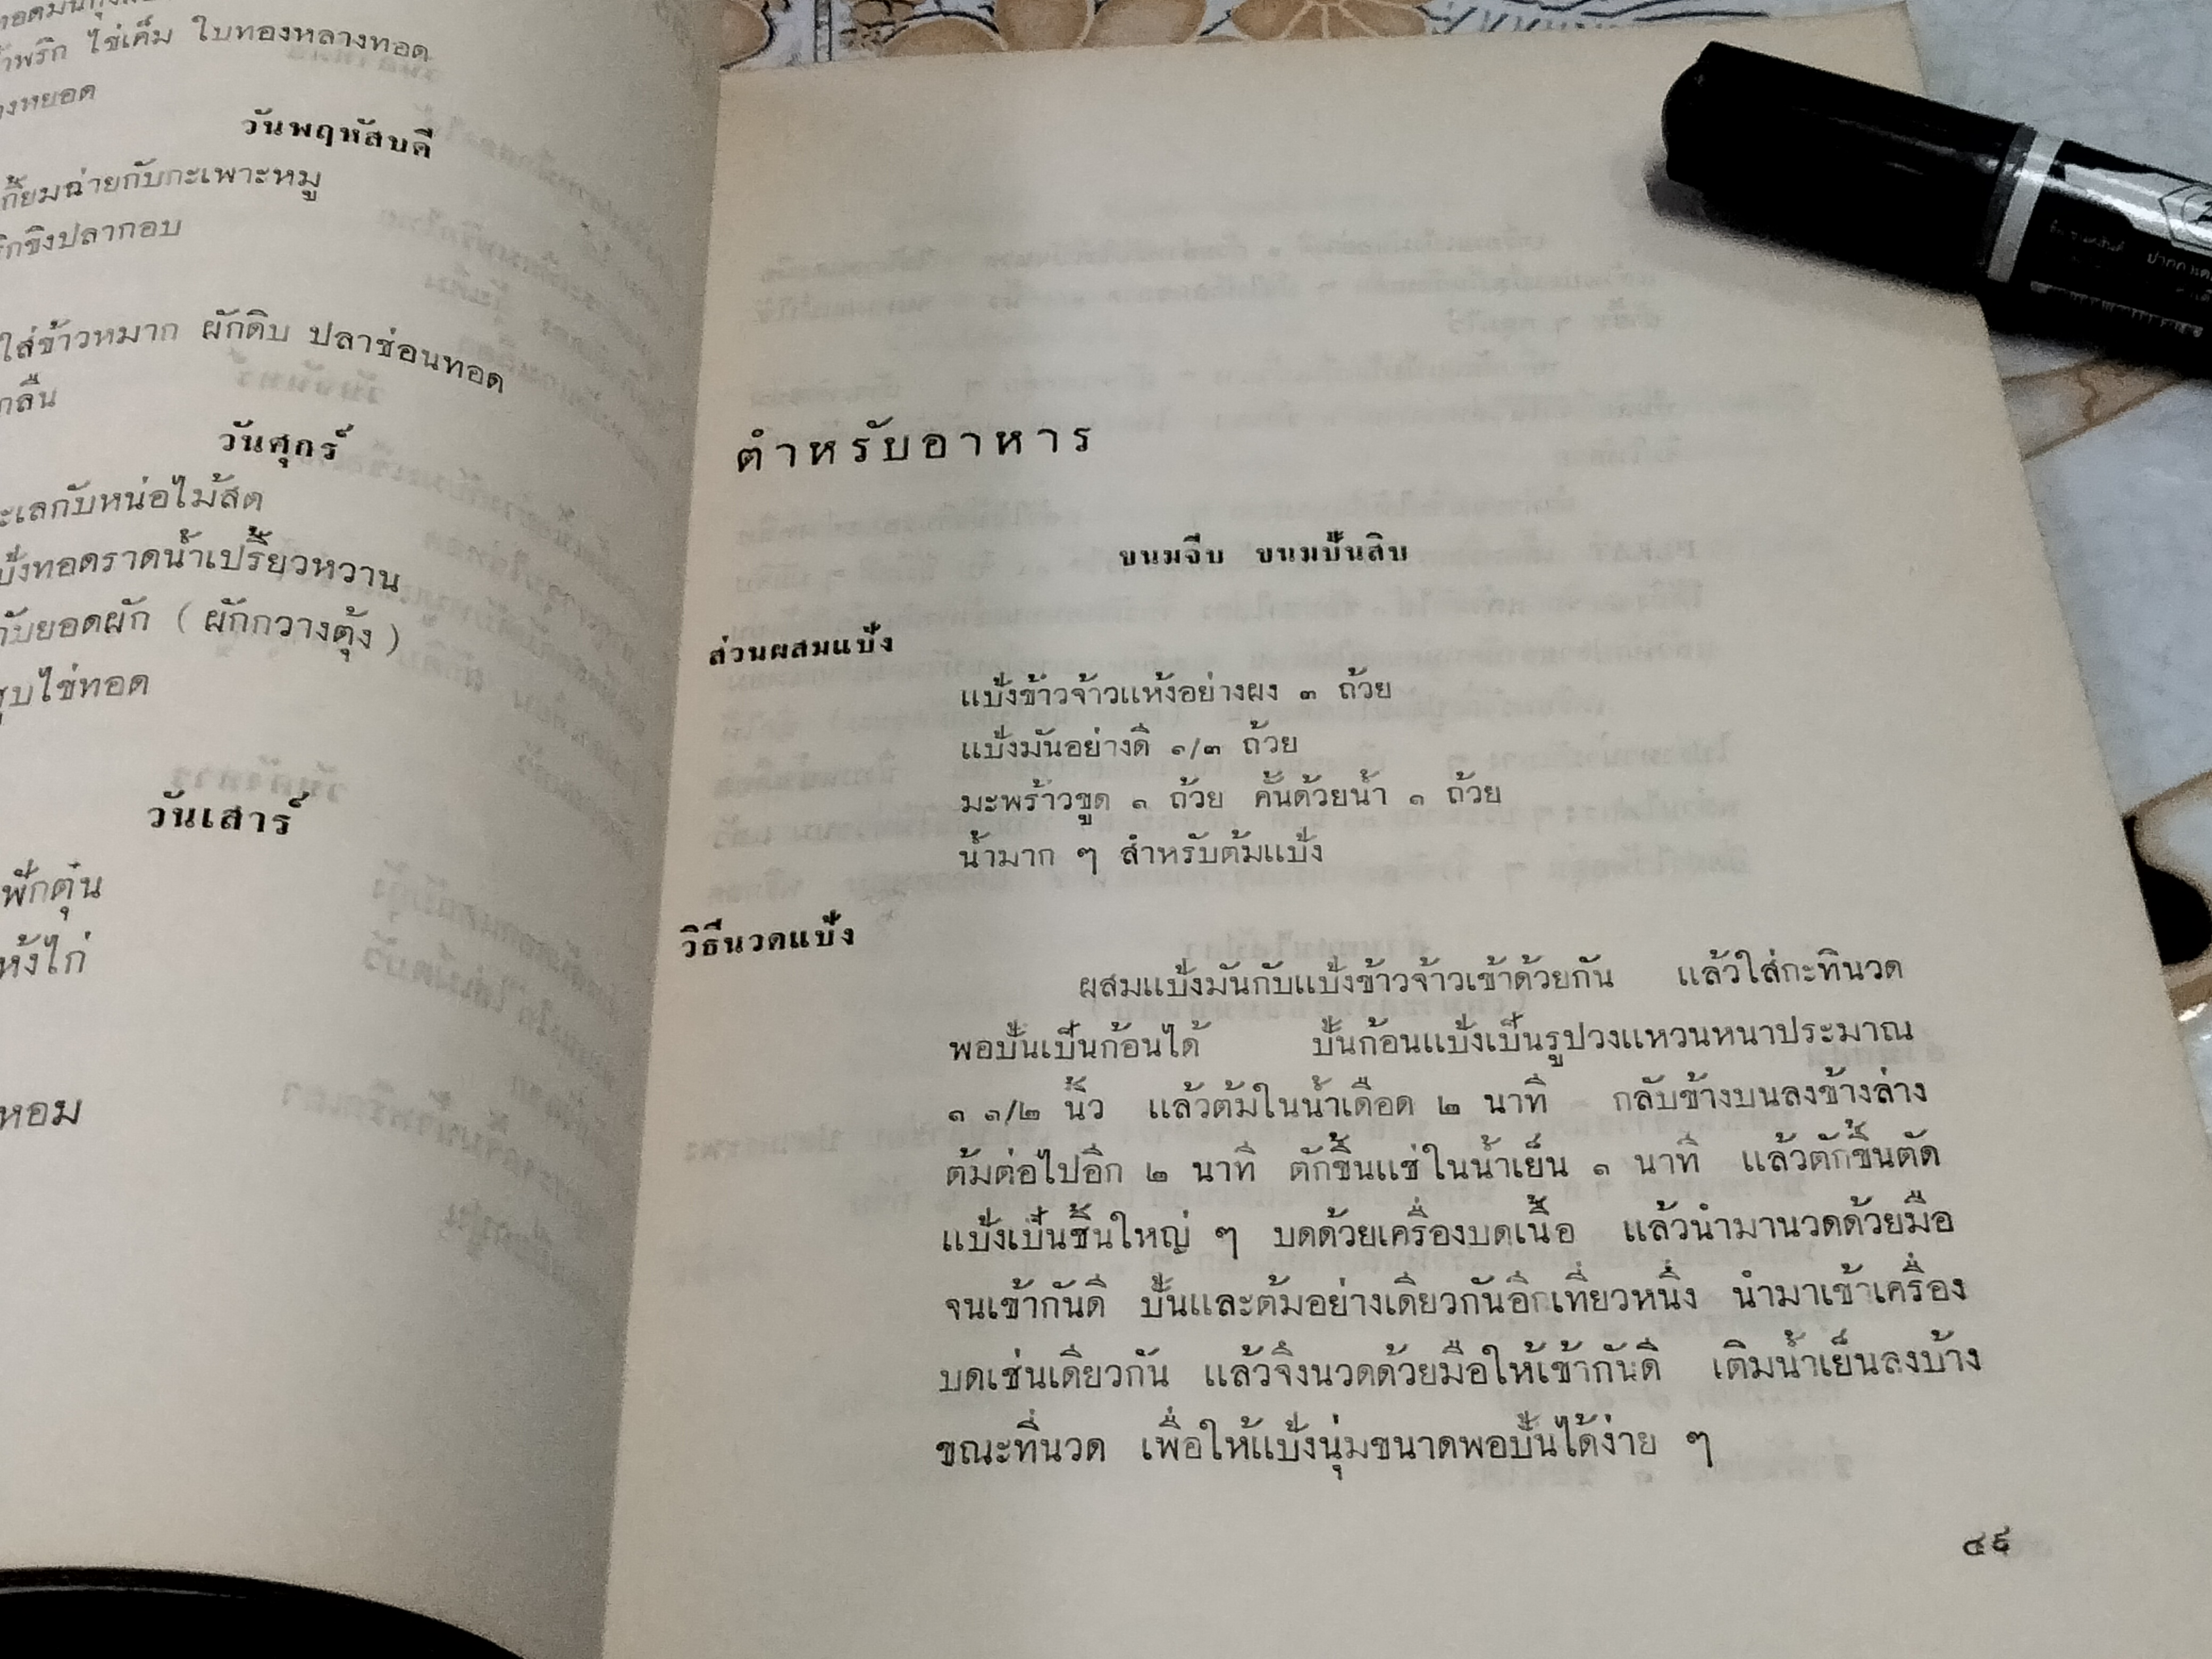 ไข่เค็ม ใบทองหลางทอด
วันพฤหัสบดี
เกี้ยมฉ่ายกับกะเพาะหมู
ขิงปลากอบ
ใส่ข้าวหมาก ผักดิบ ปลาช่อนทอด
กลืน
วันศุกร์
กับหน่อไม้สด
ทอดราดน้ำเปรี้ยวหวาน
กับยอดผัก ( ผักกวางตุ้ง )
ชุบไข่ทอด
วันเสาร์
ฟักตุ๋น
ไก่
หอม
ตำหรับอาหาร
ขนมจีบ ขนมปั้นสิบ
ส่วนผสมแป้ง
แป้งข้าวจ้าวแห้งอย่างผง ๓ ถ้วย
แป้งมันอย่างดี ๑/๓ ถ้วย
มะพร้าวขูด ๑ ถ้วย คั้นด้วยน้ำ ๑ ถ้วย
น้ำมาก ๆ สำหรับต้มแป้ง
วิธีนวดแป้ง
ผสมแป้งมันกับแป้งข้าวจ้าวเข้าด้วยกัน แล้วใส่กะทินวด
พอปั้นเป็นก้อนได้ ปั้นก้อนแป้งเป็นรูปวงแหวนหนาประมาณ
๑ ๑/๒ นิ้ว แล้วต้มในน้ำเดือด ๒ นาที กลับข้างบนลงข้างล่าง
ต้มต่อไปอีก ๒ นาที ตักขึ้นแช่ในน้ำเย็น ๑ นาที แล้วตักขึ้นตัด
แป้งเป็นชิ้นใหญ่ ๆ บดด้วยเครื่องบดเนื้อ แล้วนำมานวดด้วยมือ
จนเข้ากันดี ปั้นและต้มอย่างเดียวกันอีกเที่ยวหนึ่ง นำมาเข้าเครื่อง
บดเช่นเดียวกัน แล้วจึงนวดด้วยมือให้เข้ากันดี เติมน้ำเย็นลงบ้าง
ขณะที่นวด เพื่อให้แป้งนุ่มขนาดพอปั้นได้ง่าย ๆ
๔๙